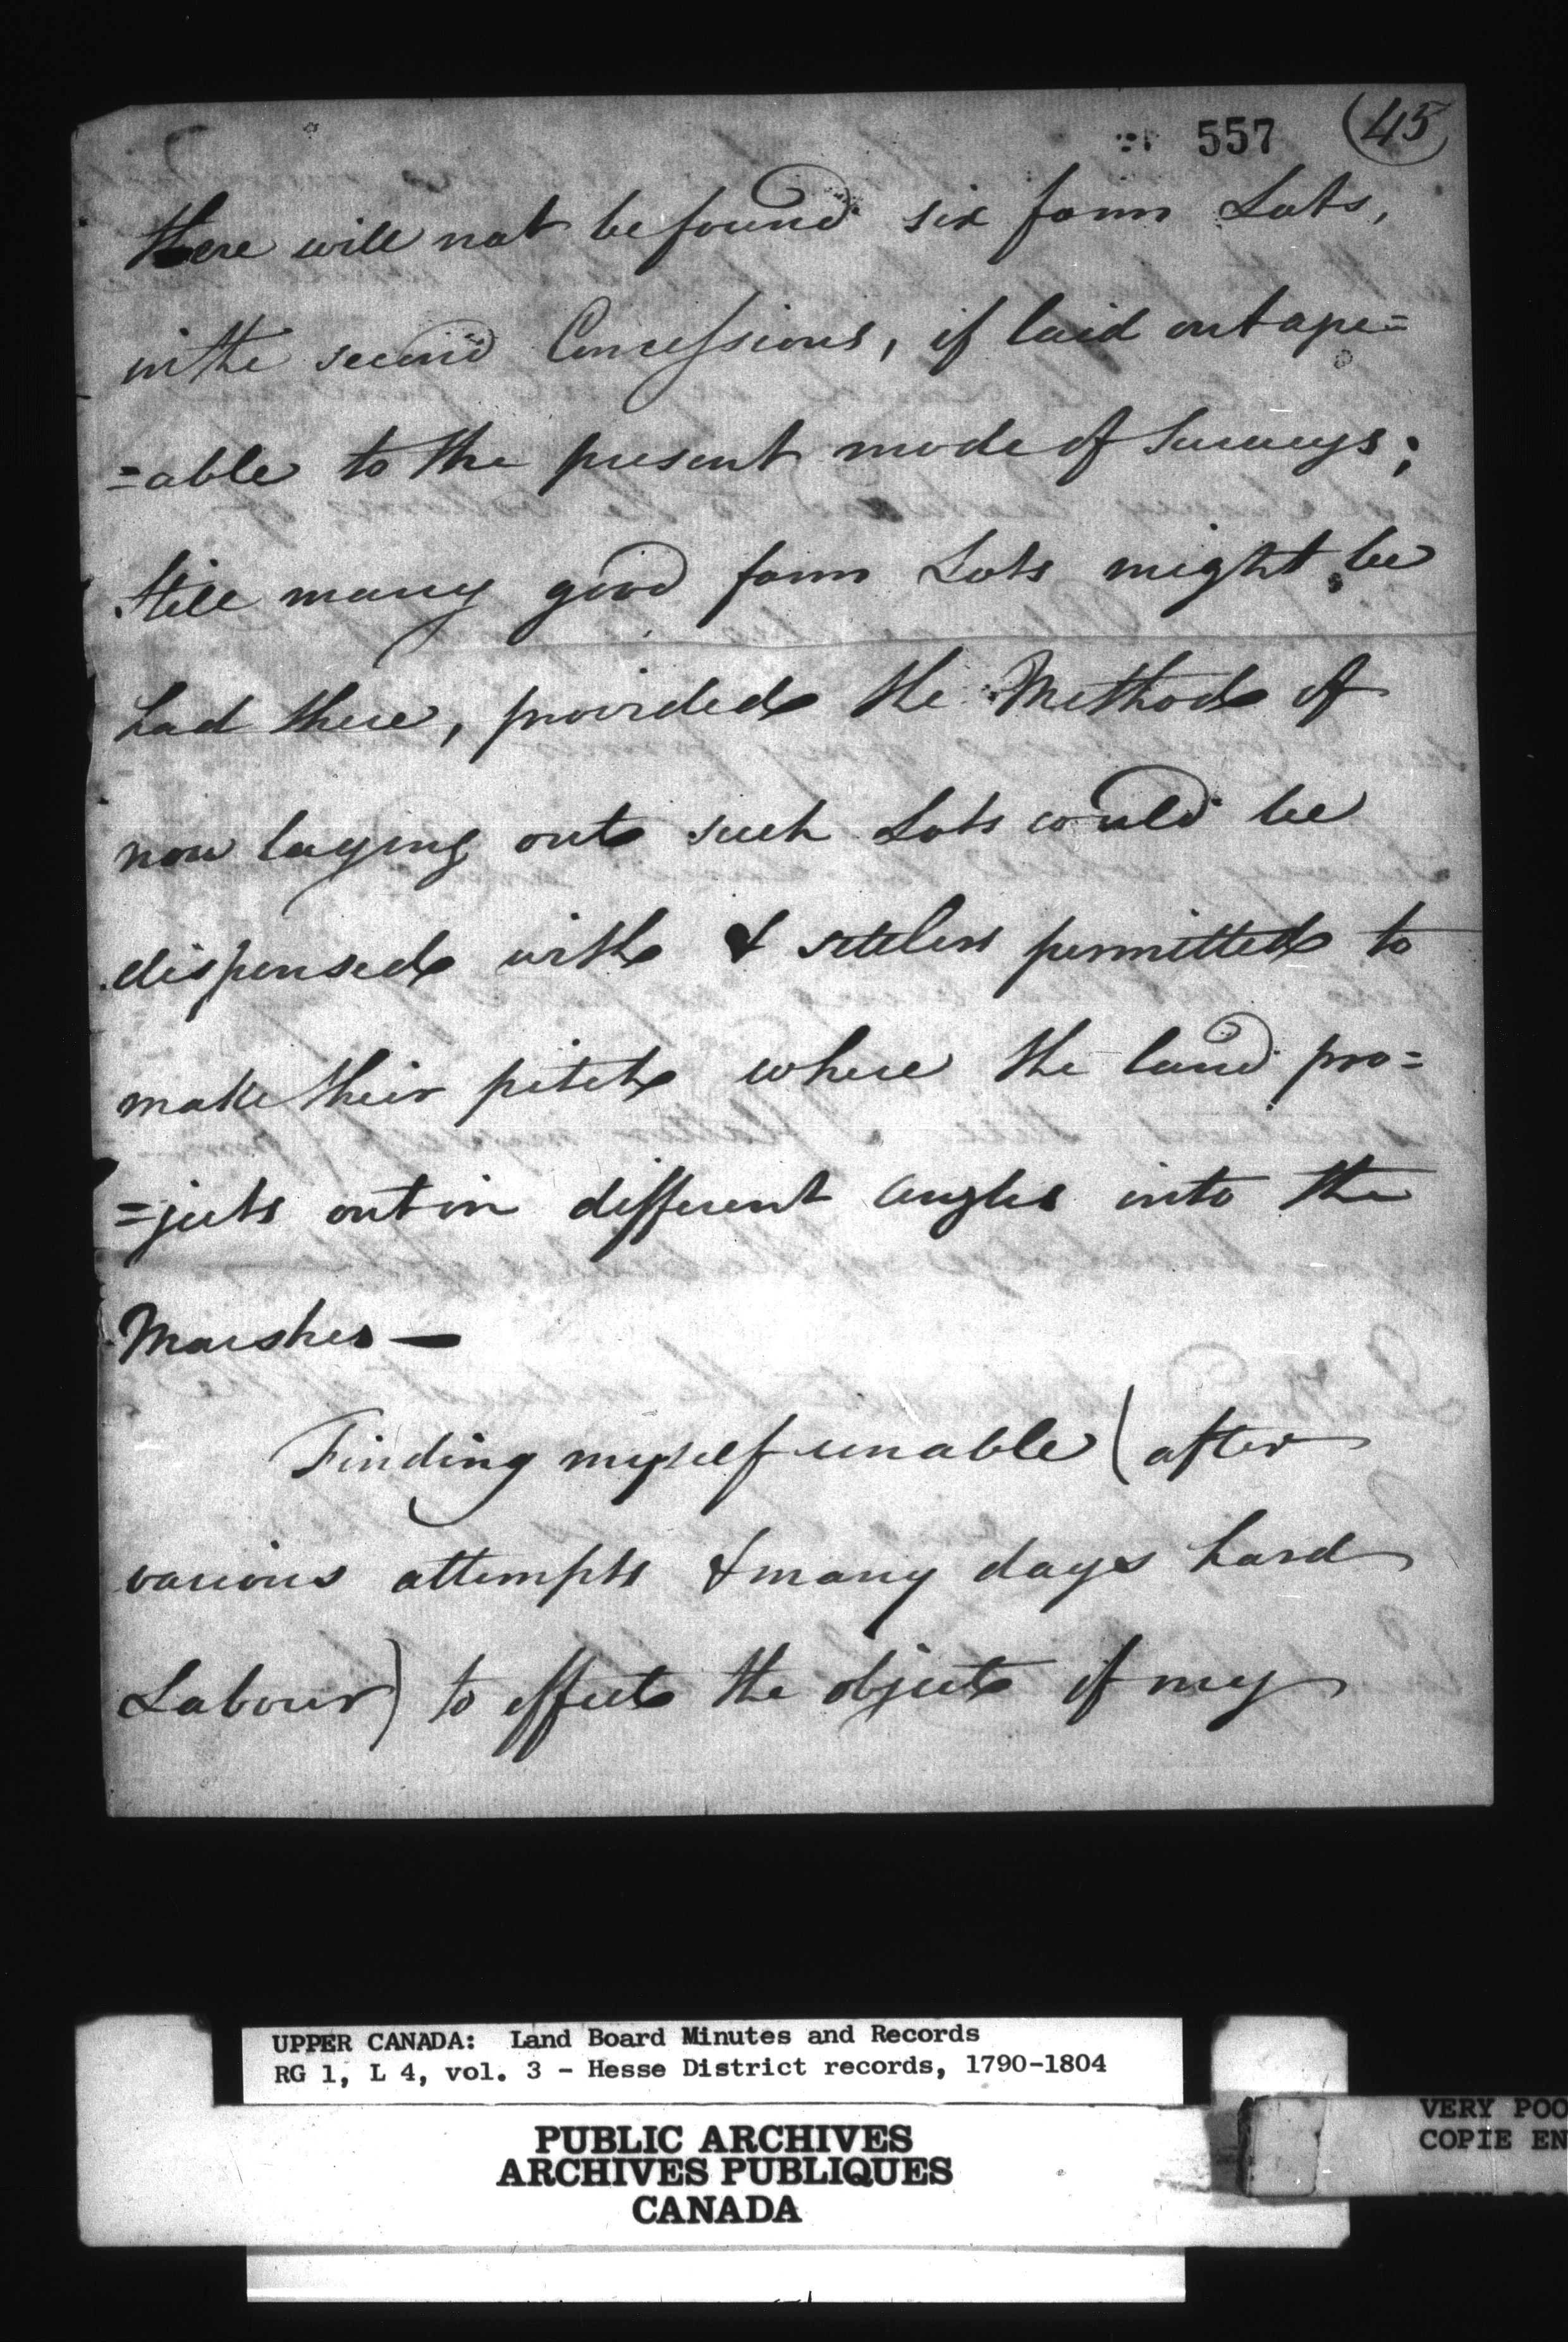 557 (45
there will not be found six farm Lots,
in the second Concessions, if laid out agre=
=able to the present mode of Surveys;
still many good farm Lots might be
had there, provided the Method of
now laying out such Lots could be
dispensed with & settlers permitted to
make their pitch where the land pro=
=jects out in different Angles into the
Marshes —
Finding myself unable (after
various attempts & many days hard
Labour) to effect the object of my
UPPER CANADA: Land Board Minutes and Records
RG 1, L 4, vol. 3 - Hesse District records, 1790-1804
PUBLIC ARCHIVES
ARCHIVES PUBLIQUES
CANADA
VERY POO
COPIE EN